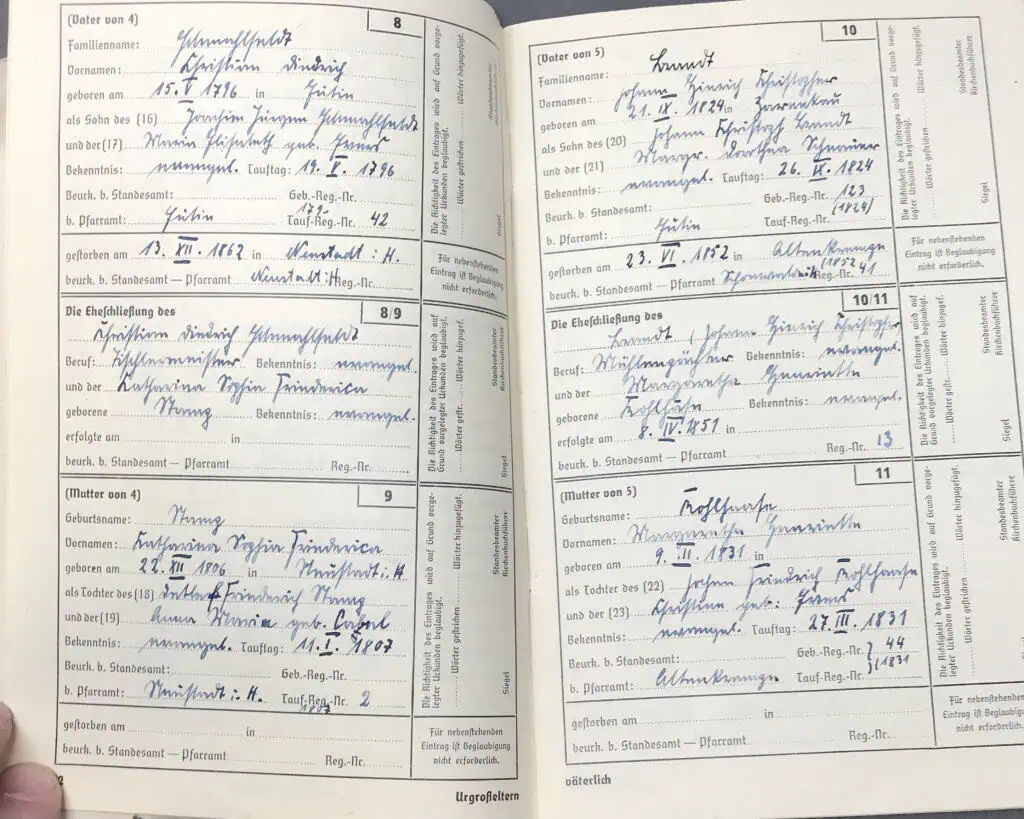 (Vater von 4) 8
Familienname:
Vornamen: Christian Diedrich
geboren am 15. V 1796 in Eutin
als Sohn des (16) Joachim Jürgen
und der (17) Maria Elisabeth geb. Evers
Bekenntnis: evangel. Tauftag: 19. V. 1796
Beurk. b. Standesamt: Geb.-Reg.-Nr.
b. Pfarramt: Eutin Tauf-Reg.-Nr. 42
gestorben am 13. XII. 1862 in Neustadt i. H.
beurk. b. Standesamt — Pfarramt Neustadt i. H. Reg.-Nr.
Die Eheschließung des 8/9
Christian Diedrich
Beruf: Tischlermeister Bekenntnis: evangel.
und der Katharina Sophia Friederica
geborene Stamp Bekenntnis: evangel.
erfolgte am in
beurk. b. Standesamt — Pfarramt Reg.-Nr.
(Mutter von 4) 9
Geburtsname: Stamp
Vornamen: Katharina Sophia Friederica
geboren am 22. XII 1806 in Neustadt i. H
als Tochter des (18) Detlef Friederich Stamp
und der (19) Anna Maria geb. Cabel
Bekenntnis: evangel. Tauftag: 11. I. 1807
Beurk. b. Standesamt: Geb.-Reg.-Nr.
b. Pfarramt: Neustadt i. H. Tauf-Reg.-Nr. 2
1807
gestorben am in
beurk. b. Standesamt — Pfarramt Reg.-Nr.
Die Richtigkeit des Eintrages wird auf Grund vorgelegter Urkunden beglaubigt.
Wörter gestrichen Wörter hinzugefügt.
Siegel
Standesbeamter
Kirchenbuchführer
Für nebenstehenden
Eintrag ist Beglaubigung
nicht erforderlich.
Die Richtigkeit des Eintrages wird auf Grund vorgelegter Urkunden beglaubigt.
Wörter gestr. Wörter hinzugef.
Siegel
Standesbeamter
Kirchenbuchführer
Die Richtigkeit des Eintrages wird auf Grund vorgelegter Urkunden beglaubigt.
Wörter gestrichen Wörter hinzugefügt.
Siegel
Standesbeamter
Kirchenbuchführer
Für nebenstehenden
Eintrag ist Beglaubigung
nicht erforderlich.
2
Urgroßeltern
(Vater von 5) 10
Familienname: Brandt
Vornamen: Johann Hinrich Christopher
geboren am 21. IX. 1824 in Zarnekau
als Sohn des (20) Johann Christoph Brandt
und der (21) Margr. Dorothea
Bekenntnis: evangel. Tauftag: 26. IX. 1824
Beurk. b. Standesamt: Geb.-Reg.-Nr. 123
b. Pfarramt: Eutin Tauf-Reg.-Nr. (1824)
gestorben am 23. VI. 1852 in Altenkrempe
beurk. b. Standesamt — Pfarramt Reg.-Nr. 41
(1852
Die Eheschließung des 10/11
Brandt, Johann Hinrich Christopher
Beruf: Mühlenpächter Bekenntnis: evangel.
und der Margaretha Henriette
geborene Kohlhase Bekenntnis: evangel.
erfolgte am 8. IV. 1851 in
beurk. b. Standesamt — Pfarramt Reg.-Nr. 13
(Mutter von 5) 11
Geburtsname: Kohlhaase
Vornamen: Margaretha Henriette
geboren am 9. II. 1831 in
als Tochter des (22) Jochim Friedrich Kohlhaase
und der (23) Christine geb: Evers
Bekenntnis: evangel. Tauftag: 27. III. 1831
Beurk. b. Standesamt: Geb.-Reg.-Nr. } 44
b. Pfarramt: Altenkrempe Tauf-Reg.-Nr. (1831
gestorben am in
beurk. b. Standesamt — Pfarramt Reg.-Nr.
Die Richtigkeit des Eintrages wird auf Grund vorgelegter Urkunden beglaubigt.
Wörter gestrichen Wörter hinzugefügt.
Siegel
Standesbeamter
Kirchenbuchführer
Für nebenstehenden
Eintrag ist Beglaubigung
nicht erforderlich.
Die Richtigkeit des Eintrages wird auf Grund vorgelegter Urkunden beglaubigt.
Wörter gestr. Wörter hinzugef.
Siegel
Standesbeamter
Kirchenbuchführer
Die Richtigkeit des Eintrages wird auf Grund vorgelegter Urkunden beglaubigt.
Wörter gestrichen Wörter hinzugefügt.
Siegel
Standesbeamter
Kirchenbuchführer
Für nebenstehenden
Eintrag ist Beglaubigung
nicht erforderlich.
väterlich